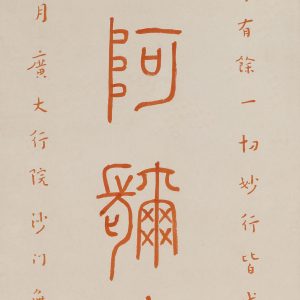 有餘一切妙行皆
阿彌
月廣大行院沙門